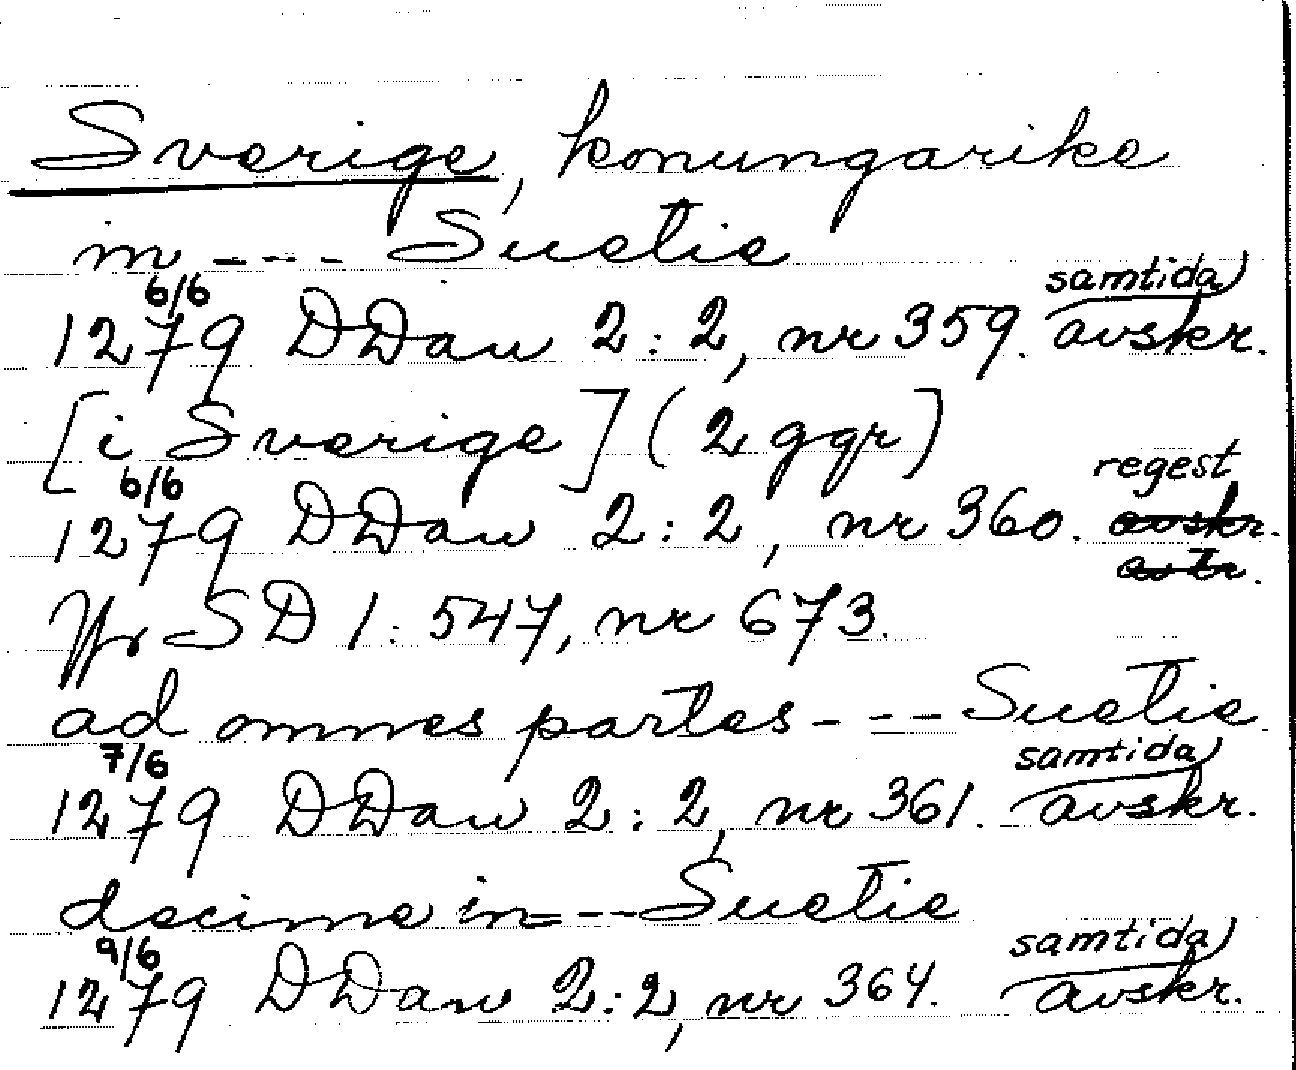 Sverige, konungarike
in --- Suetie
6/6 samtida
1279 DDan 2:2, nr 359. avskr.
[i Sverige] (2 ggr)
6/6 regest
1279 DDan 2:2, nr 360. avskr.
Jfr SD 1:547, nr 673.
ad omnes partes --- Suetie
7/6 samtida
1279 DDan 2:2, nr 361. avskr.
decime in --- Suetie
9/6 samtida
1279 DDan 2:2, nr 364. avskr.